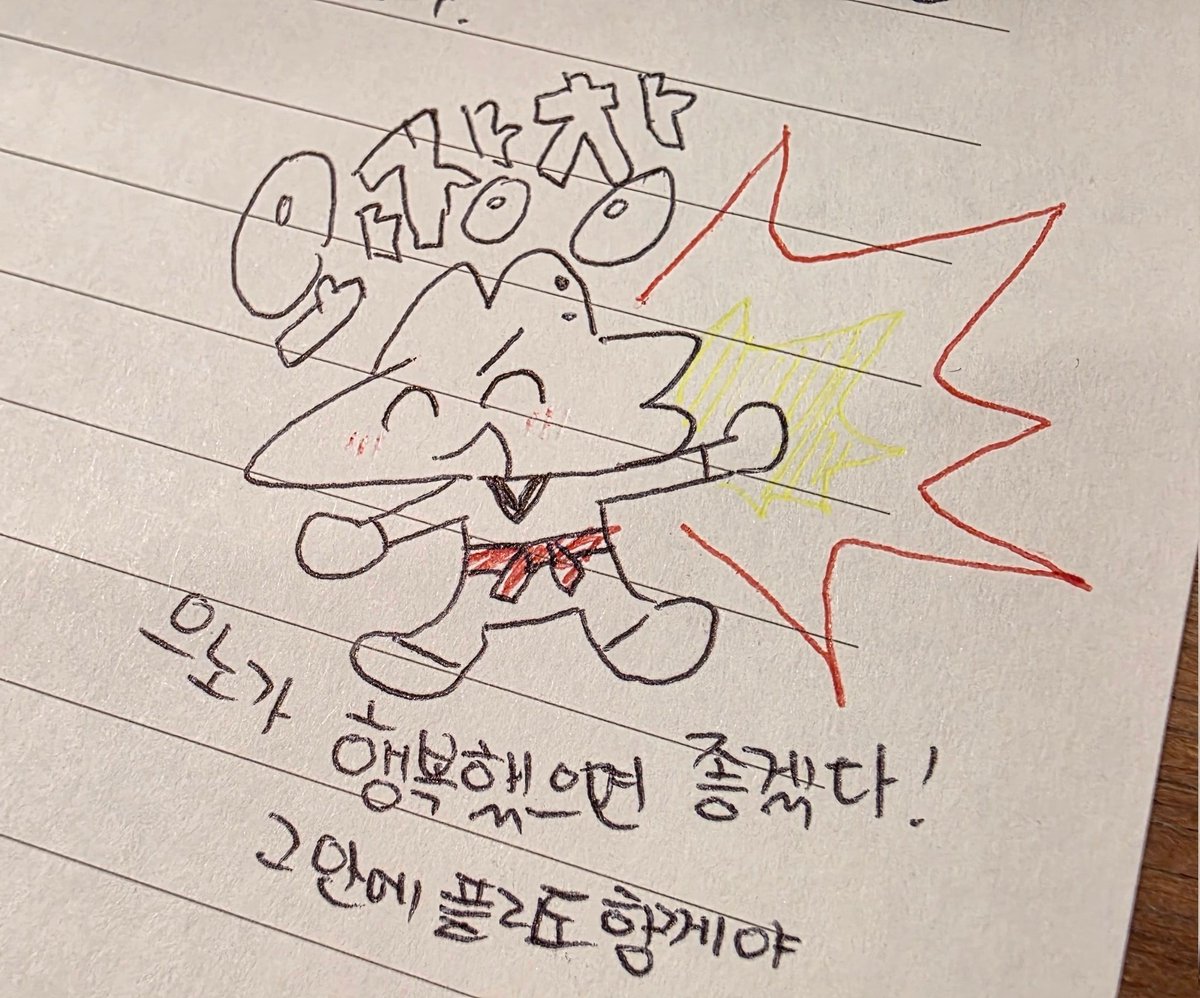 와장창
으노가 행복했으면 좋겠다!
그 안에 플리도 함께야